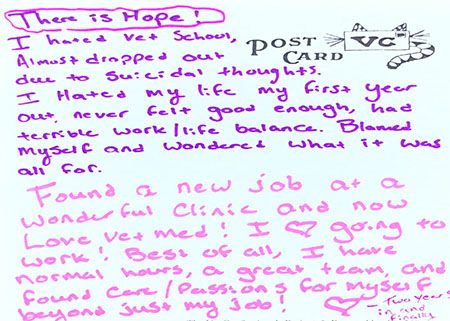 There is Hope!
I hated Vet School,
Almost dropped out
due to Suicidal thoughts.
POST CARD VC
I Hated my life my first year
out, never felt good enough, had
terrible work/life balance. Blamed
myself and wondered what it was
all for.
Found a new job at a
wonderful Clinic and now
Love vet med! I ♡ going to
work! Best of all, I have
normal hours, a great team, and
found care/Passions for myself
beyond just my job!
♡ - Two Years
in and
finally